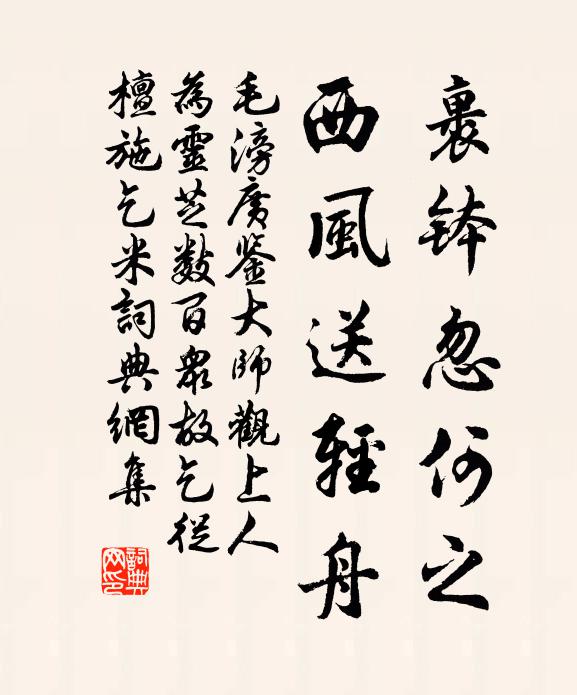 裹鉢忽何之
西風送輕舟
毛滂廣鉴大師觀上人
為靈芝數百眾故乞從
檀施乞米詞典網集
詞典网印